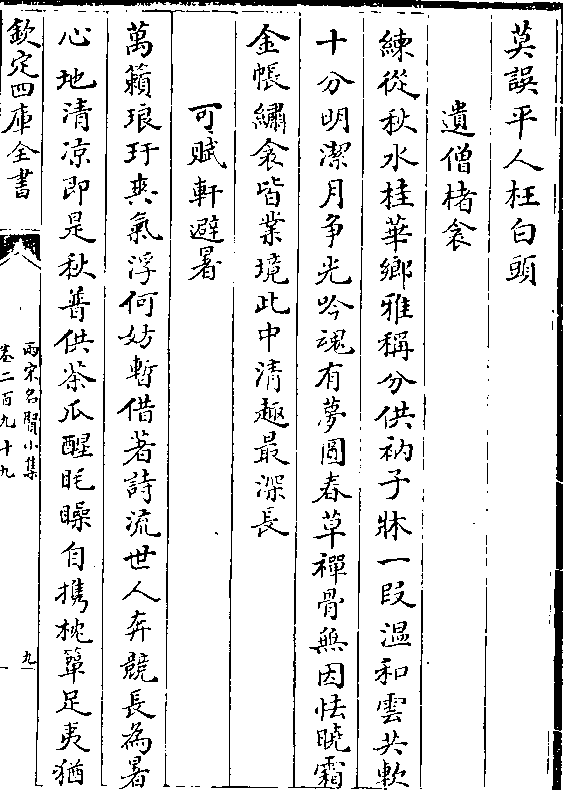 莫誤平人枉白頭
遺僧楮衾
練從秋水桂華鄉雅稱分供衲子牀一段溫和雲共軟
十分明潔月争光吟魂有夢圓春草禪骨無因怯曉霜
金帳繡衾皆業境此中清趣最深長
可賦軒避暑
萬籟琅玕爽氣浮何妨暫借著詩流世人奔競長為暑
心地清凉即是秋普供茶瓜醒眊矂自携枕簟足夷猶
欽定四庫全書
兩宋名賢小集
卷二百九十九
九